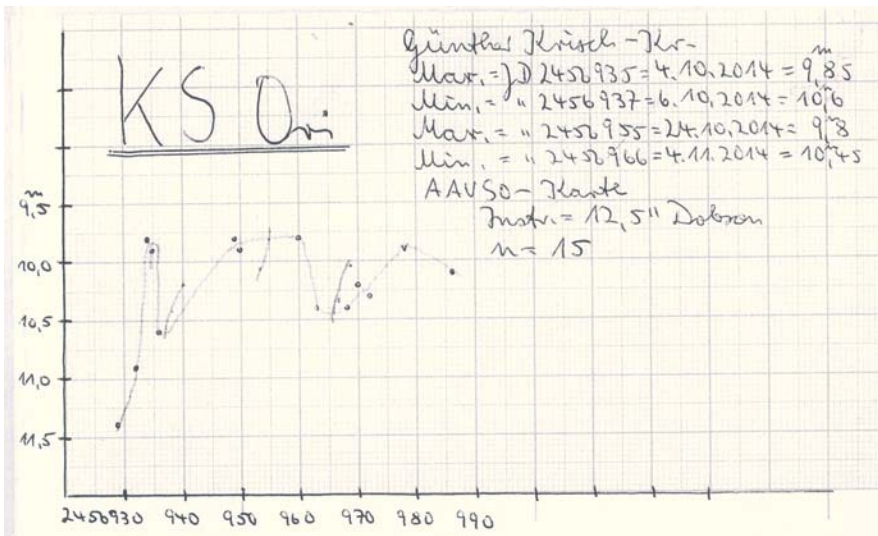 KS Ori
Günther Krisch -Kr-
Max. = JD 2456935 = 4.10.2014 = 9,85 m
Min. = " 2456937 = 6.10.2014 = 10,6 m
Max. = " 2456955 = 24.10.2014 = 9,8 m
Min. = " 2456966 = 4.11.2014 = 10,45 m
AAVSO-Karte
Instr. = 12,5" Dobson
n = 15
m
9,5
10,0
10,5
11,0
11,5
2456930 940 950 960 970 980 990